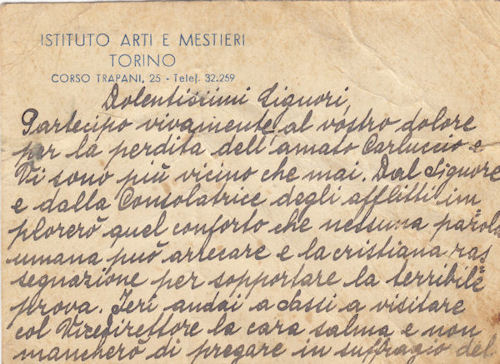 ISTITUTO ARTI E MESTIERI
TORINO
CORSO TRAPANI, 25 - Telef. 32.259
Dolentissimi Signori,
Partecipo vivamente al vostro dolore
per la perdita dell'amato Carluccio e
Vi sono più vicino che mai. Dal Signore
e dalla Consolatrice degli afflitti im
plorerò quel conforto che nessuna parola
umana può arrecare e la cristiana ras
segnazione per sopportare la terribile
prova. Ieri andai a Casti a visitare
col Vicedirettore la cara salma e non
mancherò di pregare in suffragio del